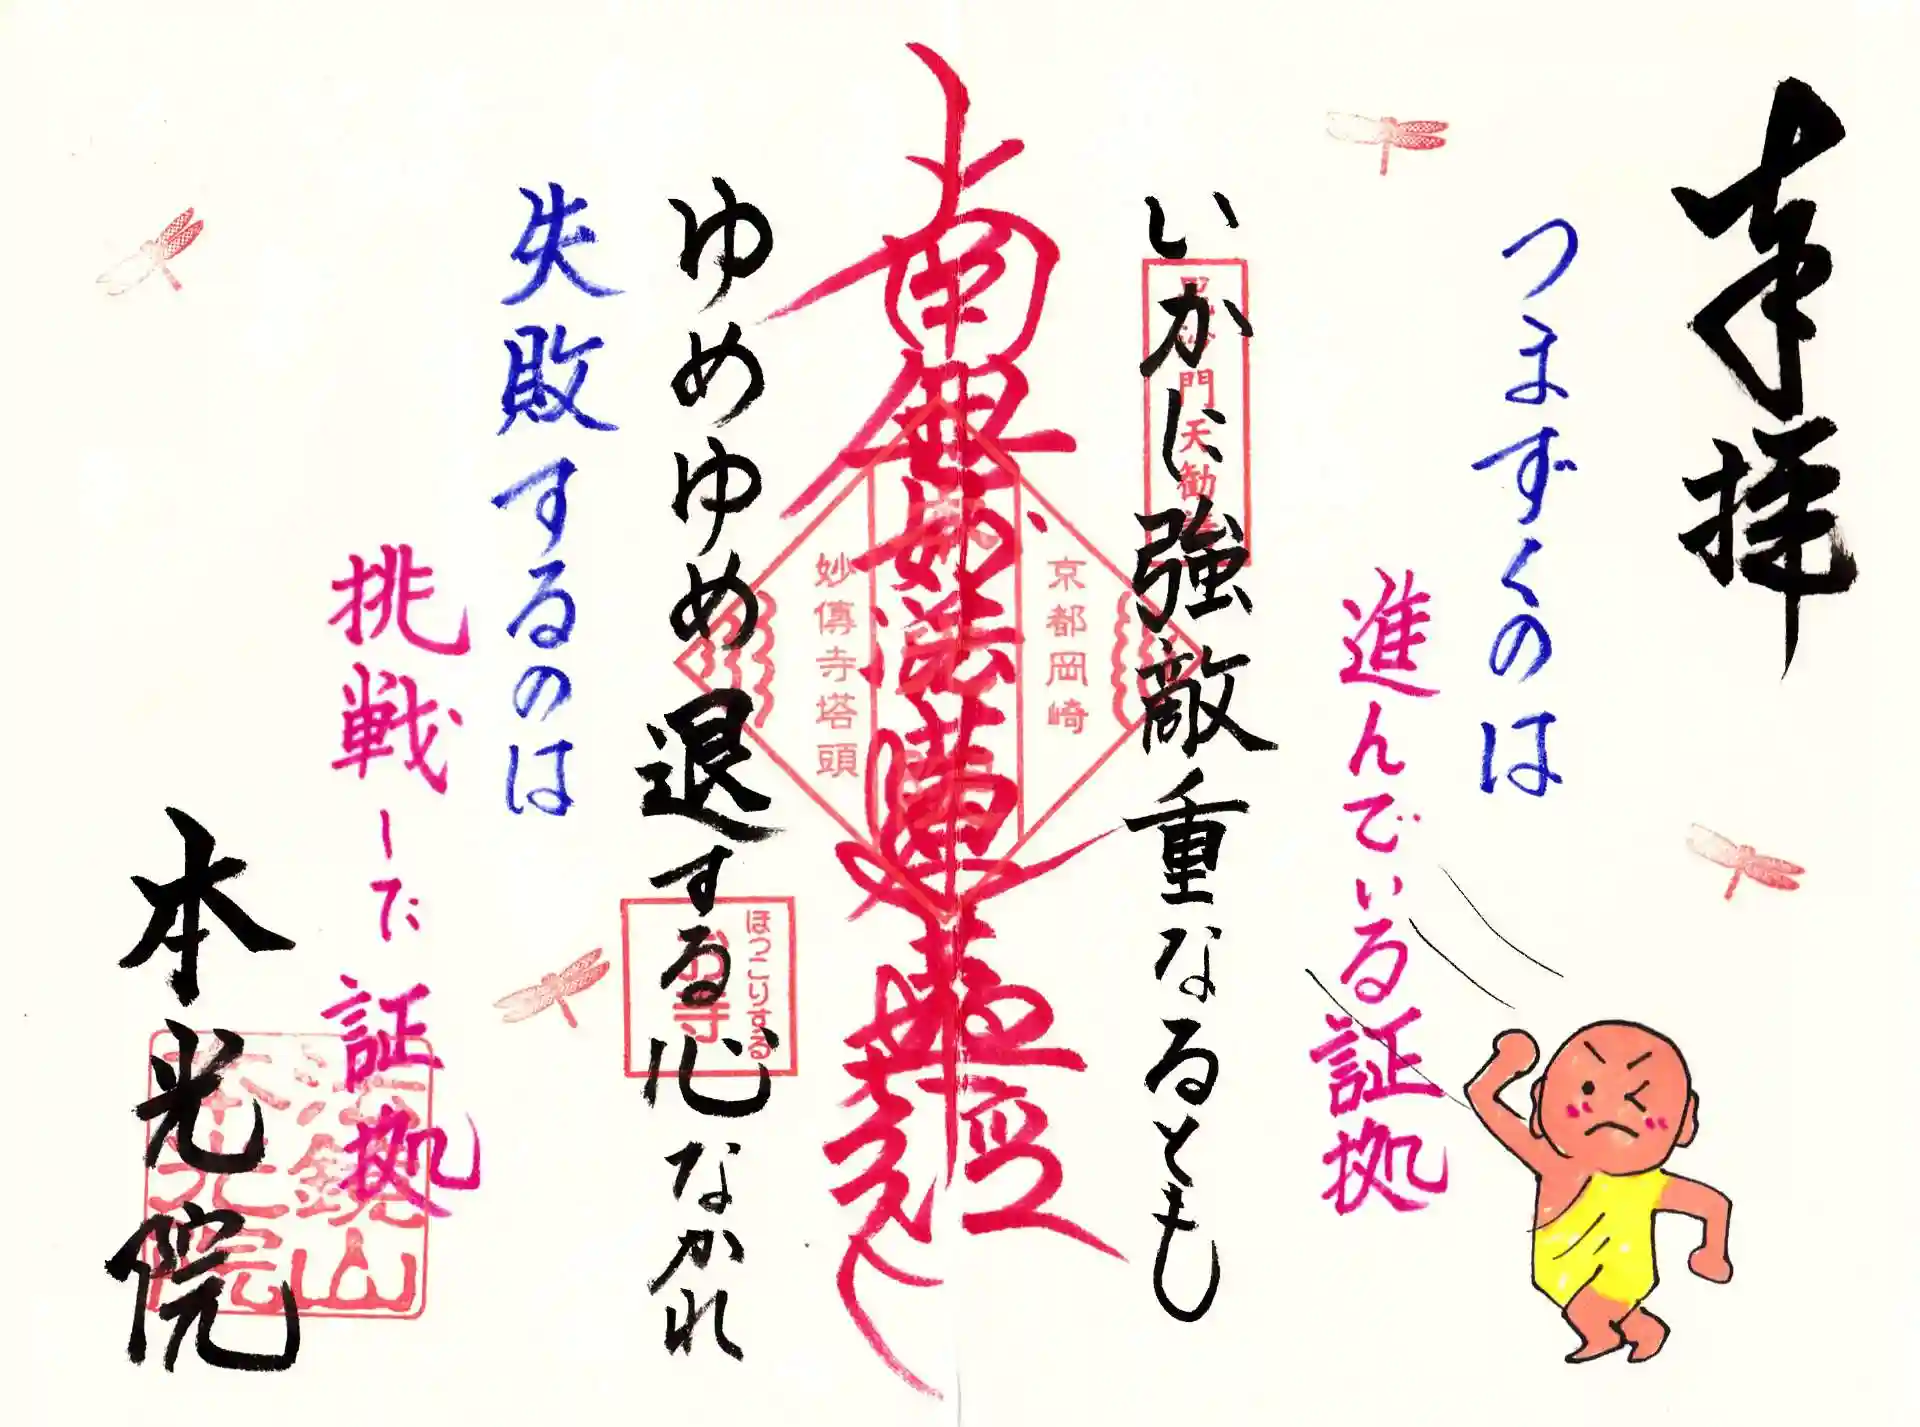 奉拝
つまずくのは
進んでいる証拠
いかに強敵重なるとも
門天勧
京都岡崎
南無妙法蓮華経
妙傳寺塔頭
ゆめゆめ退する心なかれ
ほっこりする
お寺
失敗するのは
挑戦した証拠
本光院
鏡山
本光院